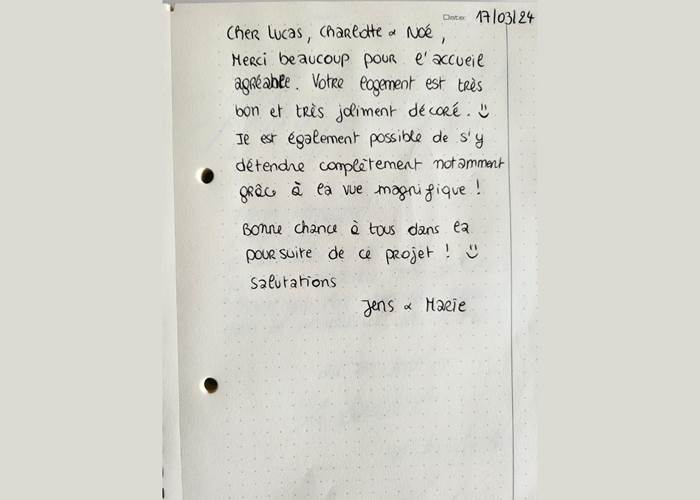 Date: 17/03/24
Cher Lucas, Charlotte & Noé,
Merci beaucoup pour l'accueil
agréable. Votre logement est très
bon et très joliment décoré. :)
Ie est également possible de s'y
détendre complètement notamment
grâc à la vue magnifique !
Bonne chance à tous dans la
poursuite de ce projet ! :)
Salutations
Jens & Marie